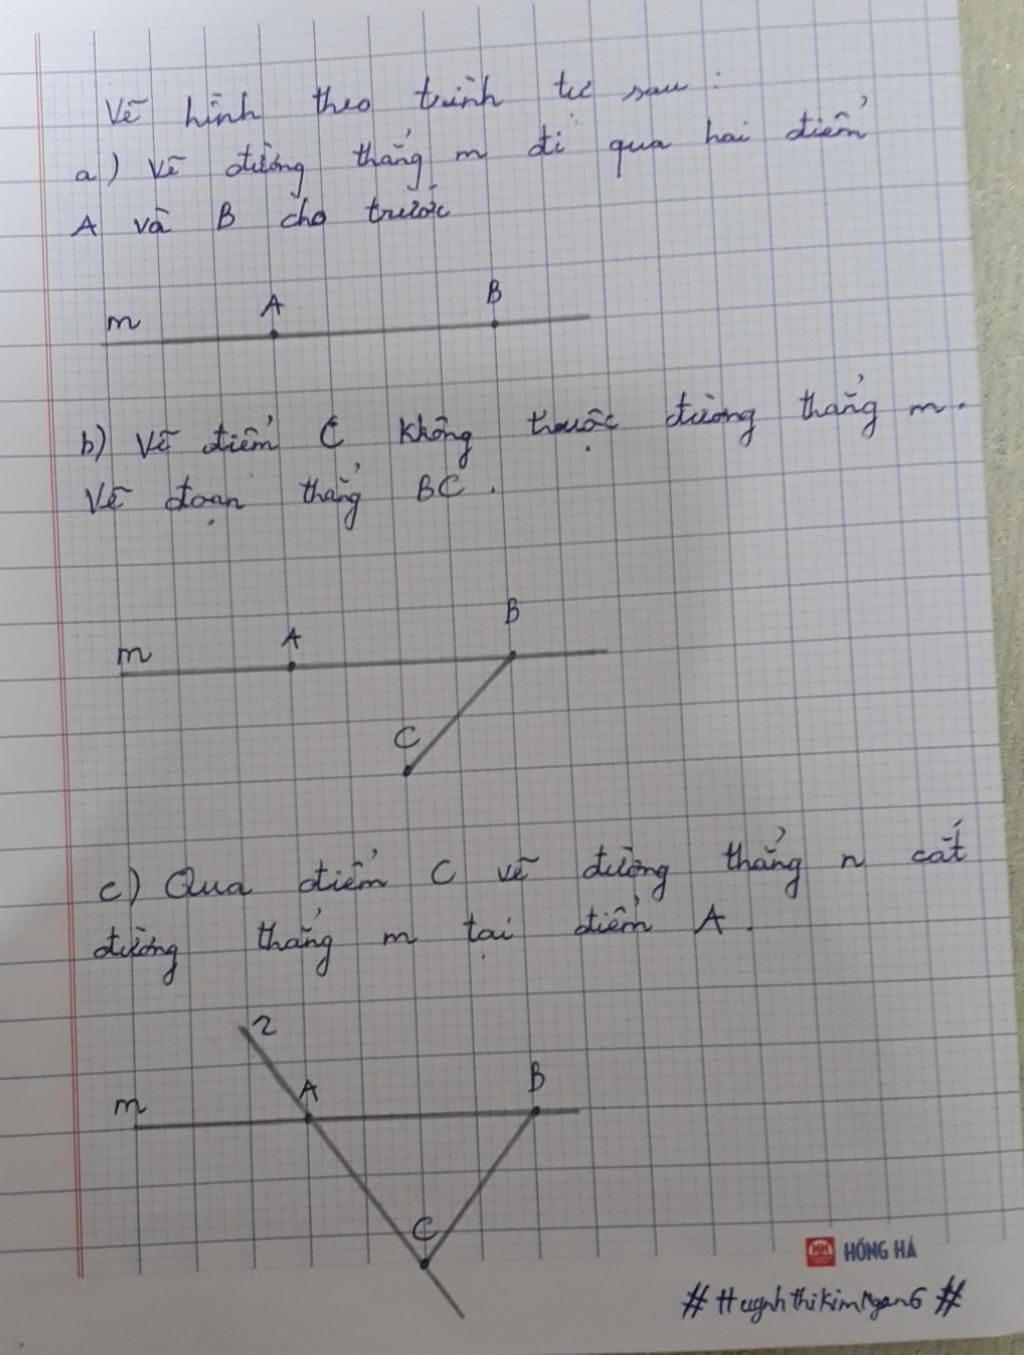 Vẽ hình theo trình tự sau:
a) Vẽ đường thẳng m đi qua hai điểm
A và B cho trước
m A B
b) Vẽ điểm C không thuộc đường thẳng m.
Vẽ đoạn thẳng BC.
m A B
C
c) Qua điểm C vẽ đường thẳng n cắt
đường thẳng m tại điểm A.
2
m A B
C
HH HỒNG HÀ
#HuynhthikimNgan6#